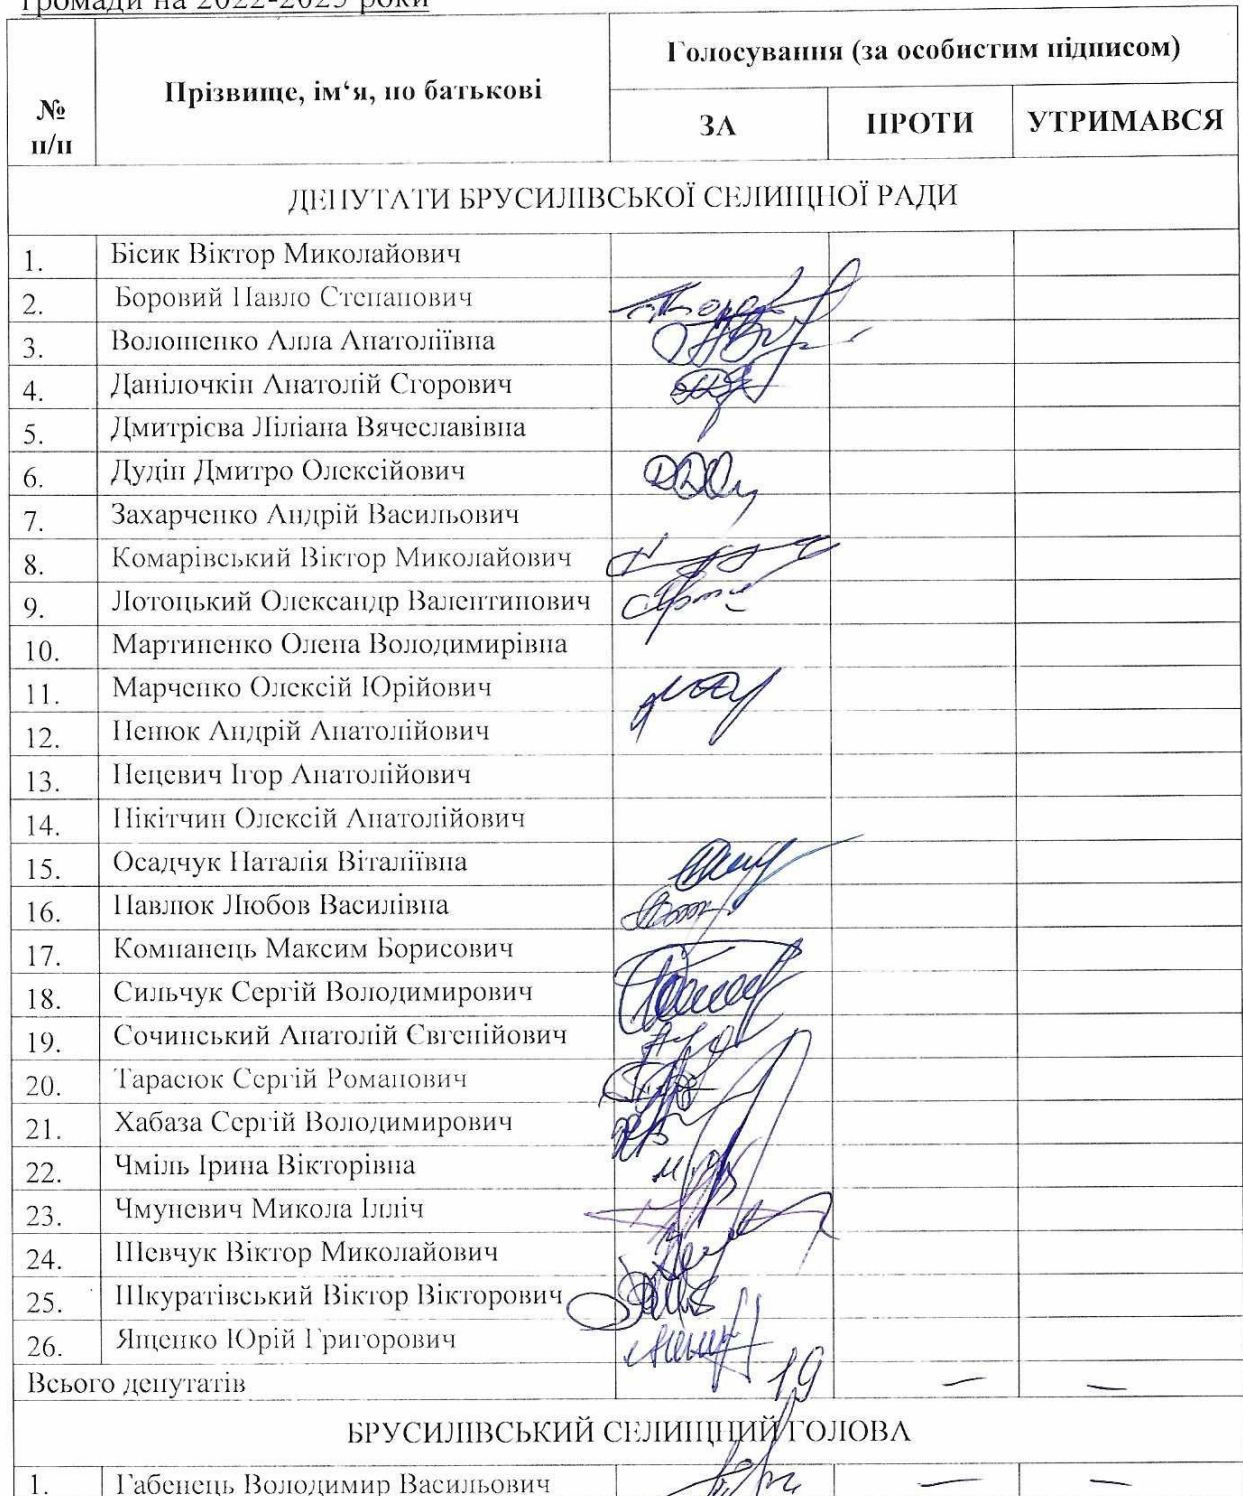 громади на 2022-2025 роки
№ п/п
Прізвище, ім‘я, по батькові
Голосування (за особистим підписом)
ЗА
ПРОТИ
УТРИМАВСЯ
ДЕПУТАТИ БРУСИЛІВСЬКОЇ СЕЛИЩНОЇ РАДИ
1. Бісик Віктор Миколайович
2. Боровий Павло Степанович
3. Волошенко Алла Анатоліївна
4. Данілочкін Анатолій Єгорович
5. Дмитрієва Ліліана Вячеславівна
6. Дудін Дмитро Олексійович
7. Захарченко Андрій Васильович
8. Комарівський Віктор Миколайович
9. Лотоцький Олександр Валентинович
10. Мартиненко Олена Володимирівна
11. Марченко Олексій Юрійович
12. Ненюк Андрій Анатолійович
13. Нецевич Ігор Анатолійович
14. Нікітчин Олексій Анатолійович
15. Осадчук Наталія Віталіївна
16. Павлюк Любов Василівна
17. Компанець Максим Борисович
18. Сильчук Сергій Володимирович
19. Сочинський Анатолій Євгенійович
20. Тарасюк Сергій Романович
21. Хабаза Сергій Володимирович
22. Чміль Ірина Вікторівна
23. Чмуневич Микола Ілліч
24. Шевчук Віктор Миколайович
25. Шкуратівський Віктор Вікторович
26. Ященко Юрій Григорович
Всього депутатів 19 — —
БРУСИЛІВСЬКИЙ СЕЛИЩНИЙ ГОЛОВА
1. Габенець Володимир Васильович — —